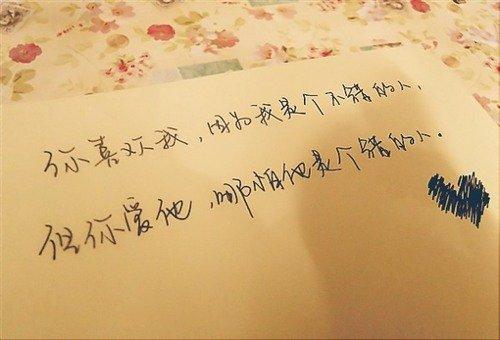 你喜欢我，因为我是个不错的人，
但你爱他，哪怕他是个错的人。